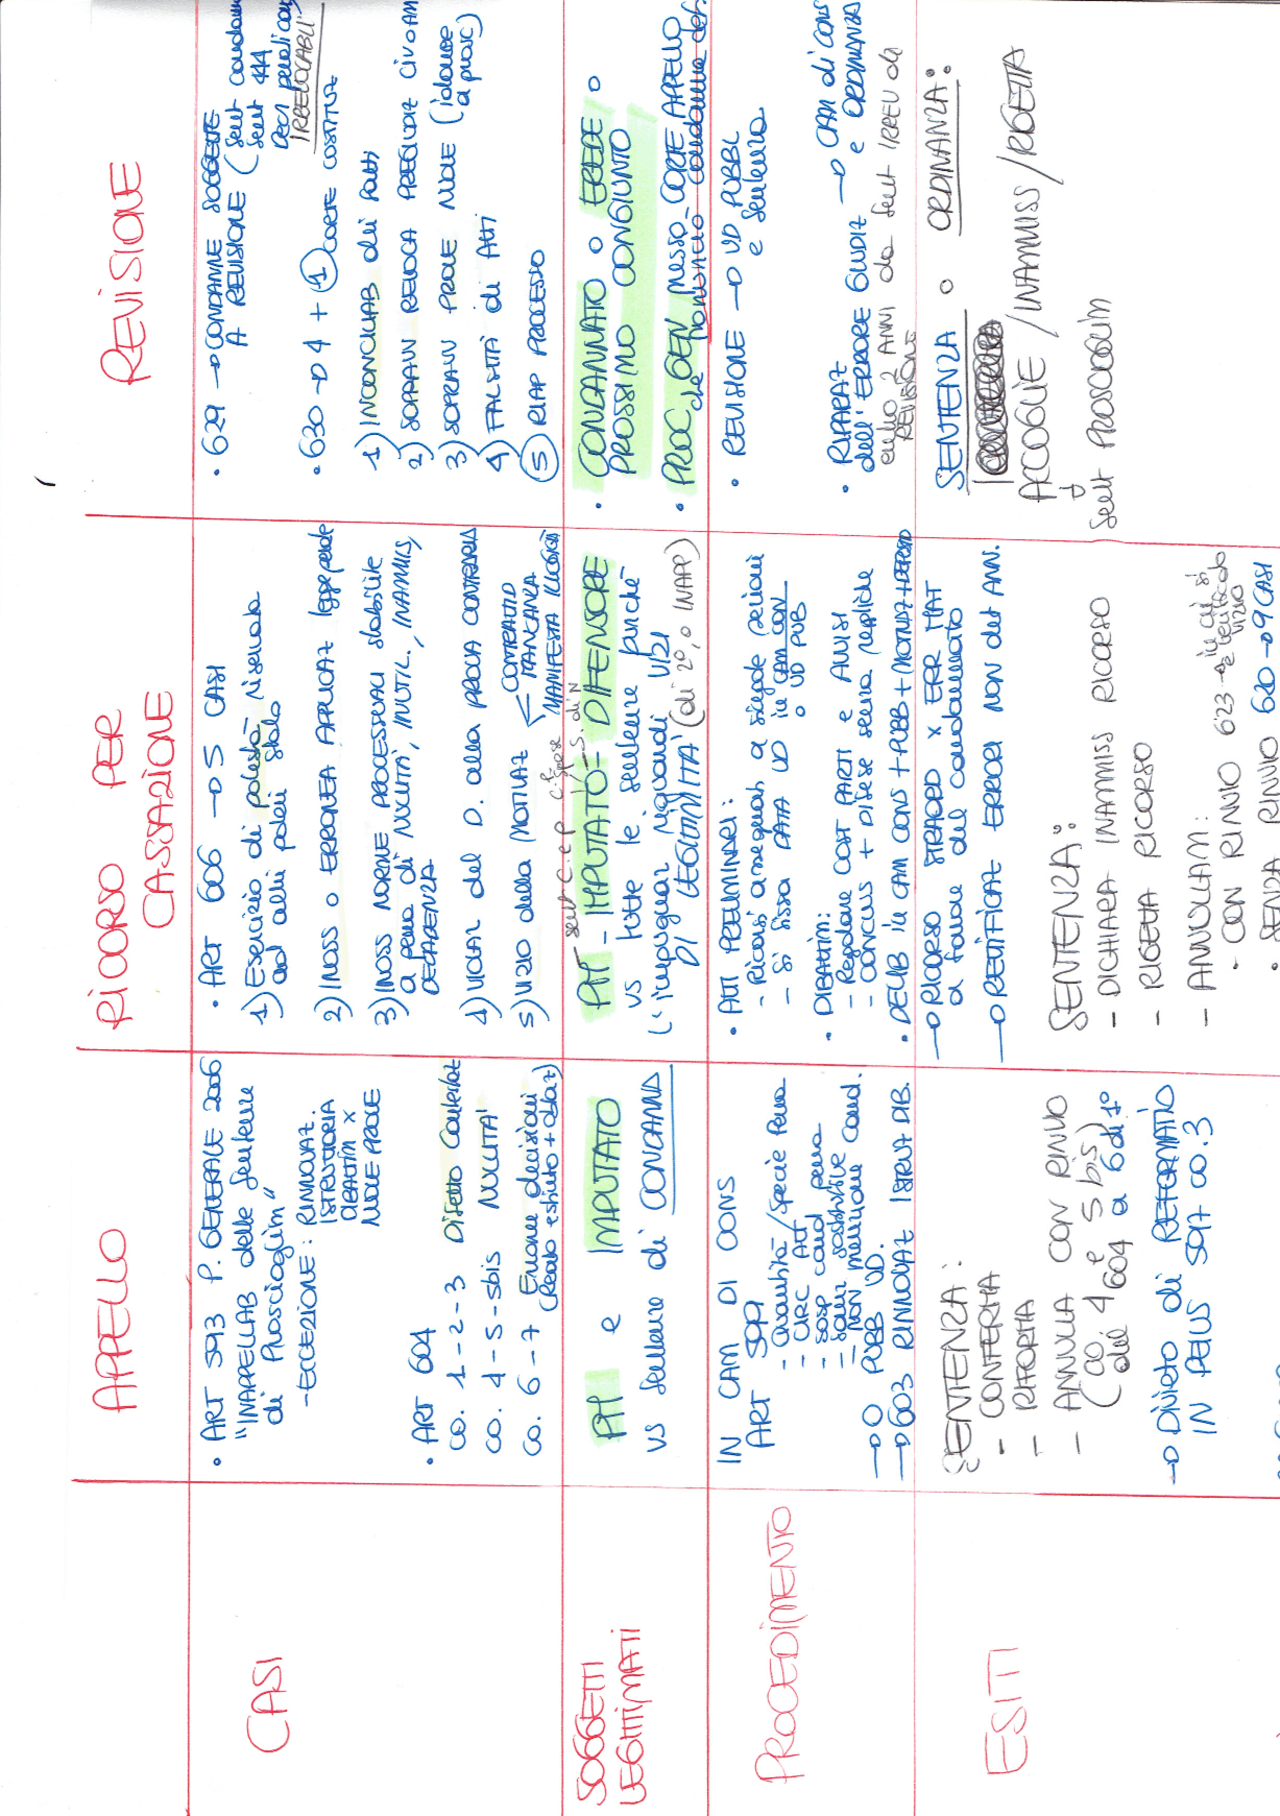 APPELLO
RICORSO PER
CASSAZIONE
REVISIONE
CASI
• ART 593 P. GENERALE 2006
"INAPPELLAB delle sentenze
di proscioglim"
- ECCEZIONE: RINNOVAZ.
ISTRUTTORIA
DIBATTIM X
NUOVE PROVE
• ART 604
co. 1 - 2 - 3 Difetto Contestaz
co. 4 - 5 - 5bis NULLITA'
co. 6 - 7 Erronee decisioni
(Reato estinto + oblaz)
• ART 606 → 5 CASI
1) Esercizio di potestà riservata
ad altri poteri stato
2) INOSS o ERRONEA APPLICAZ legge penale
3) INOSS NORME PROCESSUALI stabilite
a pena di NULLITA', INUTIL., INAMMIS,
DECADENZA
4) VIOLAZ del D. alla PROVA CONTRARIA
5) VIZIO della MOTIVAZ ← CONTRADDIO
MANCANZA
MANIFESTA ILLOGICITÀ
• 629 → CONDANNE SOGGETTE
A REVISIONE (sent condann
sent 444
Decr penali con
IRREVOCABILI
• 630 → 4 + 1 CORTE COSTITUZ
1) INCONCILIAB dei fatti
2) SOPRAVV REVOCA PREGIUDIZ CIV O AM
3) SOPRAVV PROVE NUOVE (idonee
a prosc)
4) FALSITÀ di ATTI
5) RIAP PROCESSO
SOGGETTI
LEGITTIMATI
PM e IMPUTATO
vs sentenze di CONDANNA
PM - IMPUTATO - DIFENSORE
vs tutte le sentenze purché
l'impugnaz riguardi VIZI
DI LEGITTIMITÀ (di 2°, o INAPP)
• CONDANNATO o EREDE o
PROSSIMO CONGIUNTO
• PROC GEN presso CORTE APPELLO
che
PROCEDIMENTO
IN CAM DI CONS
ART 599
- Quantità/specie Pena
- CIRC ATT
- SOSP cond pena
- sanz sostitutive
- NON menzione cond.
→ O PUBB UD.
→ 603 RINNOVAZ ISTRUT DIB.
• ATTI PRELIMINARI:
- Ricorsi assegnati a singole sezioni
- si fissa DATA UD in CAM CON
o UD PUB
• DIBATTIM:
- Regolare COST PARTI e AVVISI
- CONCLUS + DIFESE senza repliche
• DELIB in CAM CONS + PUBB + MOTIVAZ + DEPOSITO
→ RICORSO STRAORD X ERR MAT
a favore del condannato
→ RETTIFICAZ ERRORI NON det ANN.
• REVISIONE → UD PUBBL
e sentenza
• RIPARAZ
dell'ERRORE GIUDIZ → CAM di CONS
e ORDINANZA
entro 2 ANNI da sent IRREV di
REVISIONE
ESITI
SENTENZA:
- CONFERMA
- RIFORMA
- ANNULLA CON RINVIO
(co. 4 e 5 bis)
del 604 a G di 1°
→ Divieto di REFORMATIO
IN PEIUS 597 co. 3
SENTENZA:
- DICHIARA INAMMISS RICORSO
- RIGETTA RICORSO
- ANNULLAM:
• CON RINVIO 623 → in cui si
è verificato
vizio
• SENZA RINVIO 620 → 9 CASI
SENTENZA o ORDINANZA:
ACCOGLIE / INAMMISS / RIGETTA
↓
sent PROSCIOGLIM